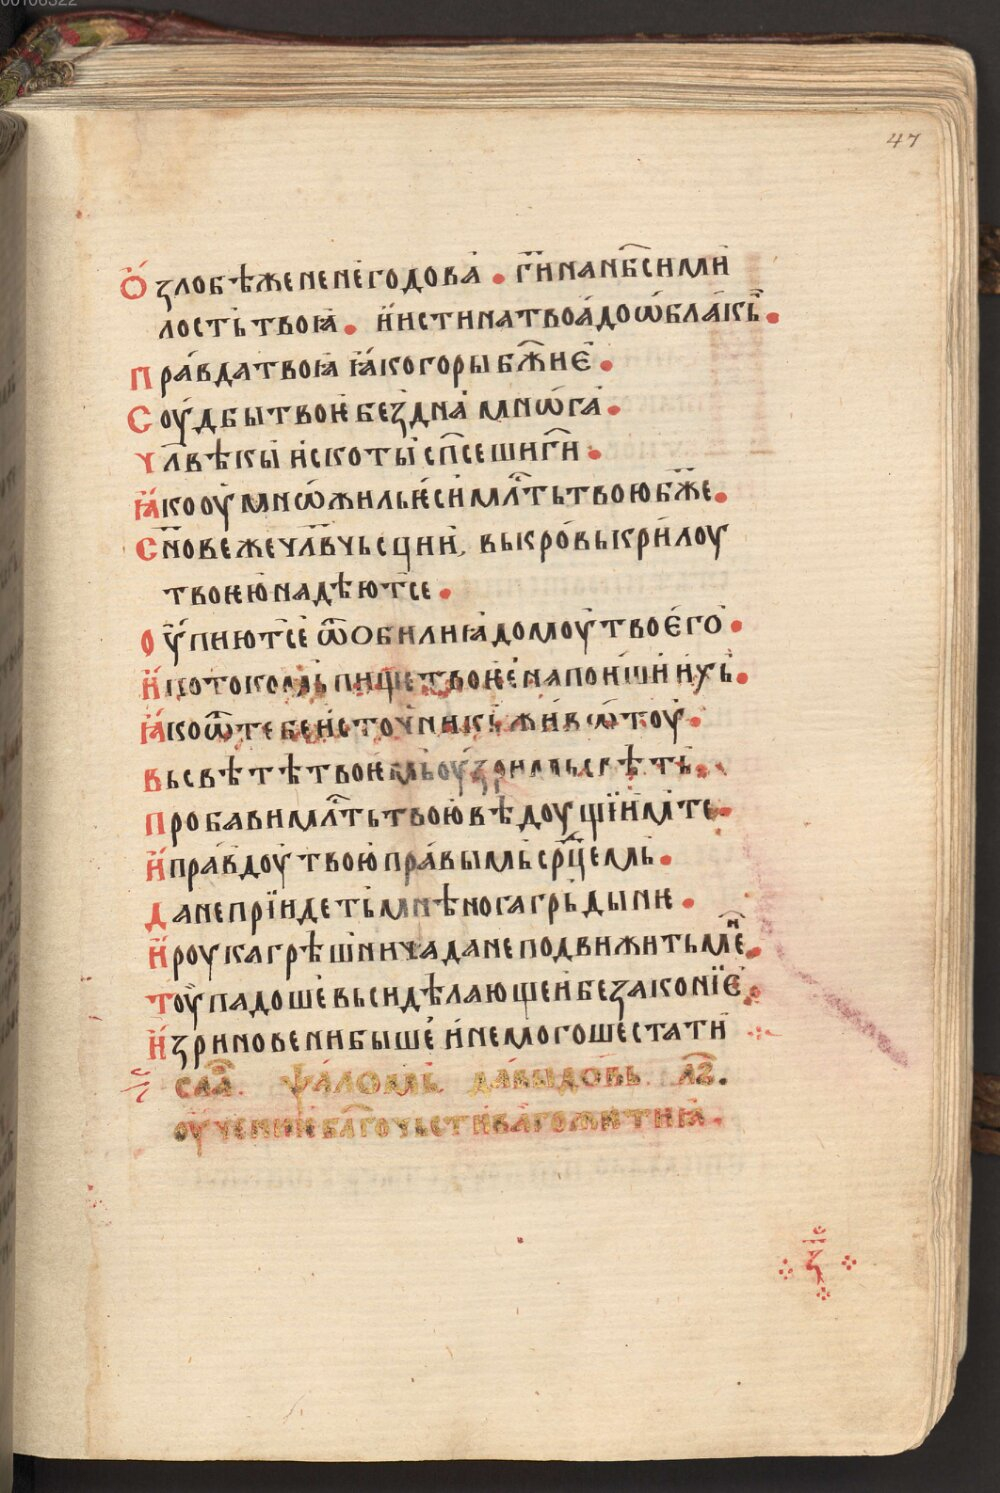 00106322
47
Ѻ҆ злобѣженене́годова̀ • г҃и҆нан҃бсими
лостьтвоꙗ • и҆истинатвоа́доѡ҆бла́кь •
пра́вдатвоꙗ ꙗ҆когорыб҃жиѥ •
Соу́дбытвоѥ҆безⷣна мнѡ́га •
Чл҃вѣкы и҆скоты сп҃сешиг҃и •
Ꙗ҆кооу҆мнѡ́жильѥ҆симл҃тьтвоюб҃же •
Сн҃овежечл҃вчьсции, выкро́выкри́лоу
твоѥю҆надѣютсе •
Оу҆пиютсе ѿобилиꙗдомоутвоѥ́го •
И҆потокомьпищетвоѥ҆напоиши ихь •
Ꙗ҆коѿтебеи҆сточникь жи́вѡтоу •
Вьсвѣтѣтвоѥмьоу҆зримьсвѣть •
Пробавимл҃тьтвою҆вѣдоущїи҆мте •
И҆пра́вдоутвоюпра́вымьср҃цемь •
Данеприидетьмнѣногагрьдыню •
И҆роукагрѣшничаданеподвижитьмне •
Тоу҆падошевьсидѣлающеи҆безаконїе •
И҆зриновенибыше и҆немогошестати
сла҃. ѱа́ломь. дав꙽ыдовь. л҃з.